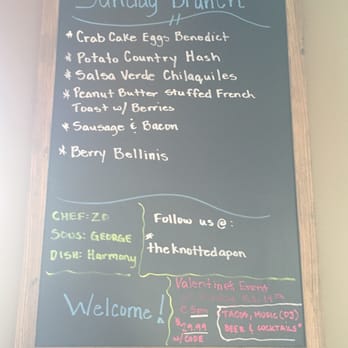 Sunday Brunch
* Crab Cake Eggs Benedict
* Potato Country Hash
* Salsa Verde Chilaquiles
* Peanut Butter Stuffed French
Toast w/ Berries
* Sausage & Bacon
* Berry Bellinis
CHEF: ZO
SOUS: GEORGE
DISH: Harmony
Follow us @:
*
theknottedapon
Welcome!
Valentines Event
5pm
$29.99
w/ CODE
TACOS, MUSIC (DJ)
BEER & COCKTAILS*